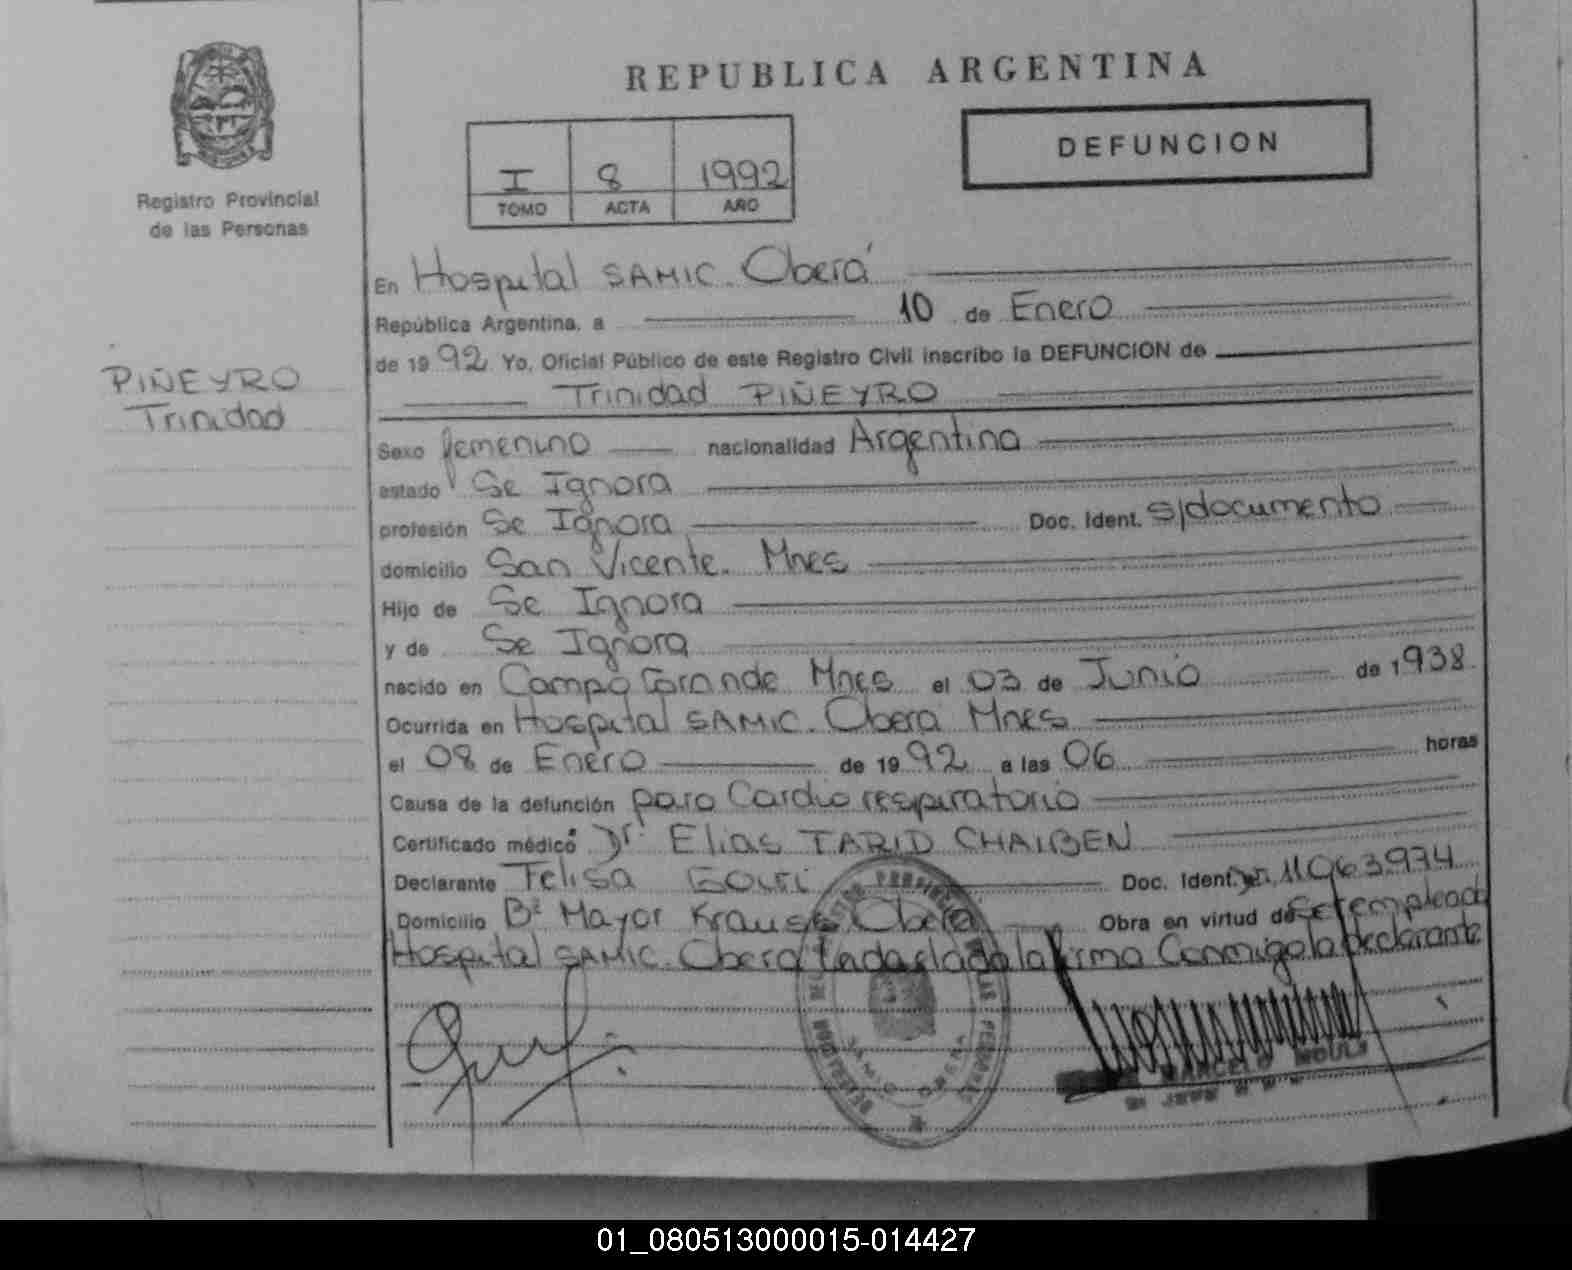 REPUBLICA ARGENTINA
DEFUNCION
I 8 1992
TOMO ACTA AÑO
Registro Provincial
de las Personas
PIÑEYRO
Trinidad
En Hospital SAMIC. Oberá
República Argentina, a 10 de Enero
de 1992 Yo, Oficial Público de este Registro Civil inscribo la DEFUNCION de
Trinidad PIÑEYRO
Sexo femenino nacionalidad Argentina
estado Se Ignora
profesión Se Ignora Doc. Ident. S/documento
domicilio San Vicente. Mnes
Hijo de Se Ignora
y de Se Ignora
nacido en Campo Grande Mnes el 03 de Junio de 1938
Ocurrida en Hospital SAMIC. Oberá Mnes
el 08 de Enero de 1992 a las 06 horas
Causa de la defunción paro Cardio respiratorio
Certificado médico Dr. Elias TARID CHAIBEN
Declarante Felisa Doc. Ident. 11063974
Domicilio Bº Mayor Krause Oberá Obra en virtud de empleada
Hospital SAMIC. Oberá la firma Conmigo la declarante
MARCELO
01_080513000015-014427